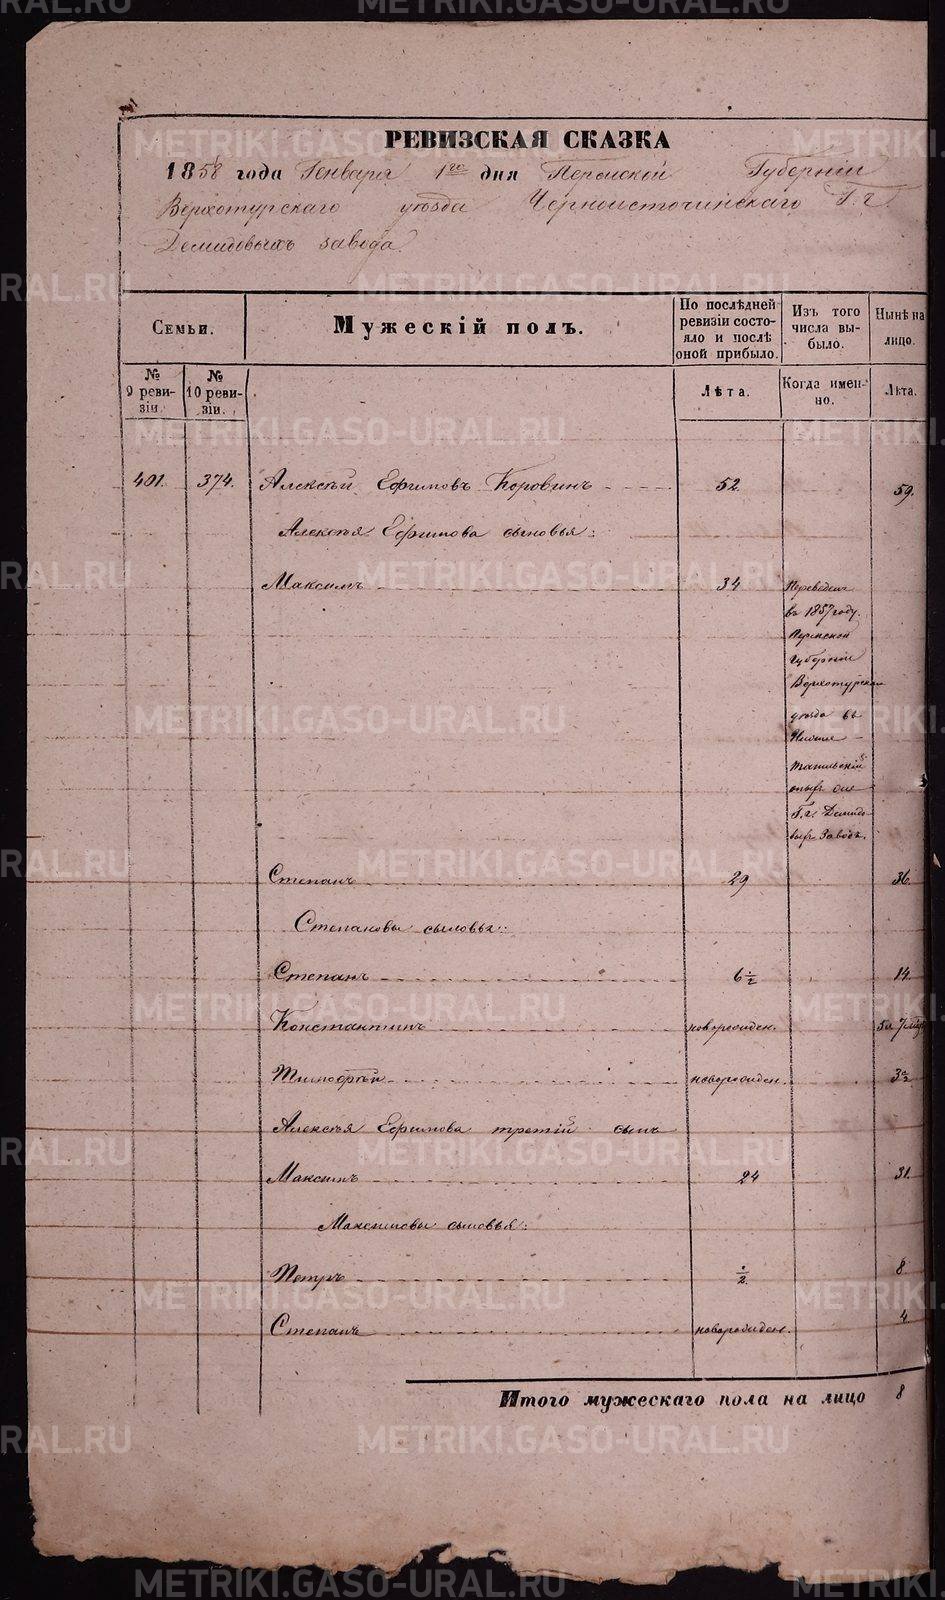 РЕВИЗСКАЯ СКАЗКА
1858 года Генваря 1го дня Пермской Губернiи
Верхотурскаго уѣзда Черноисточинскаго Г.г.
Демидовыхъ завода.
Семьи.
Мужескiй полъ.
По послѣдней ревизiи состояло и послѣ оной прибыло.
Изъ того числа выбыло.
Нынѣ на лицо.
№ 9 ревизiи.
№ 10 ревизiи.
Лѣта.
Когда именно.
Лѣта.
401. 374. Алексѣй Ефимовъ Коровинъ 52 59.
Алексѣя Ефимова сыновья:
Максимъ 34 Переведен
въ 1857 году.
Пермской
Губернiи
Верхотурска
уѣзда въ
Нижне-
тагильскiй
Г.г. Демидо
выхъ Заводъ.
Степанъ 29 36.
Степановы сыновья:
Степанъ 6 1/2 14.
Константинъ новорожден. 5 л 7 мѣс
Тимофѣй новорожден. 3 1/2
Алексѣя Ефимова третiй сынъ
Максимъ 24 31.
Максимовы сыновья:
Петръ 1/2 8
Степанъ новорожден. 4.
Итого мужескаго пола на лицо 8
METRIKI.GASO-URAL.RU